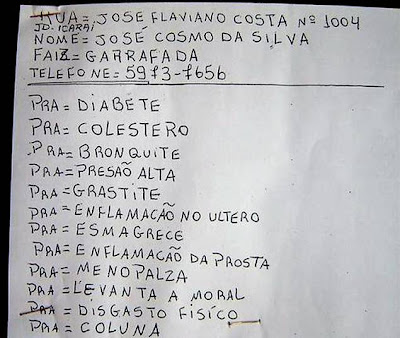 RUA= JOSE FLAVIANO COSTA Nº 1004
JD. ICARAI
NOME= JOSÉ COSMO DA SILVA
FAIZ= GARRAFADA
TELEFONE= 5973-7656
PRA= DIABETE
PRA= COLESTERO
PRA= BRONQUITE
PRA= PRESÃO ALTA
PRA= GRASTITE
PRA= ENFLAMAÇÃO NO ULTERO
PRA= ESMAGRECE
PRA= ENFLAMACÃO DA PROSTA
PRA= MENOPALZA
PRA= LEVANTA A MORAL
PRA= DISGASTO FISÍCO
PRA= COLUNA